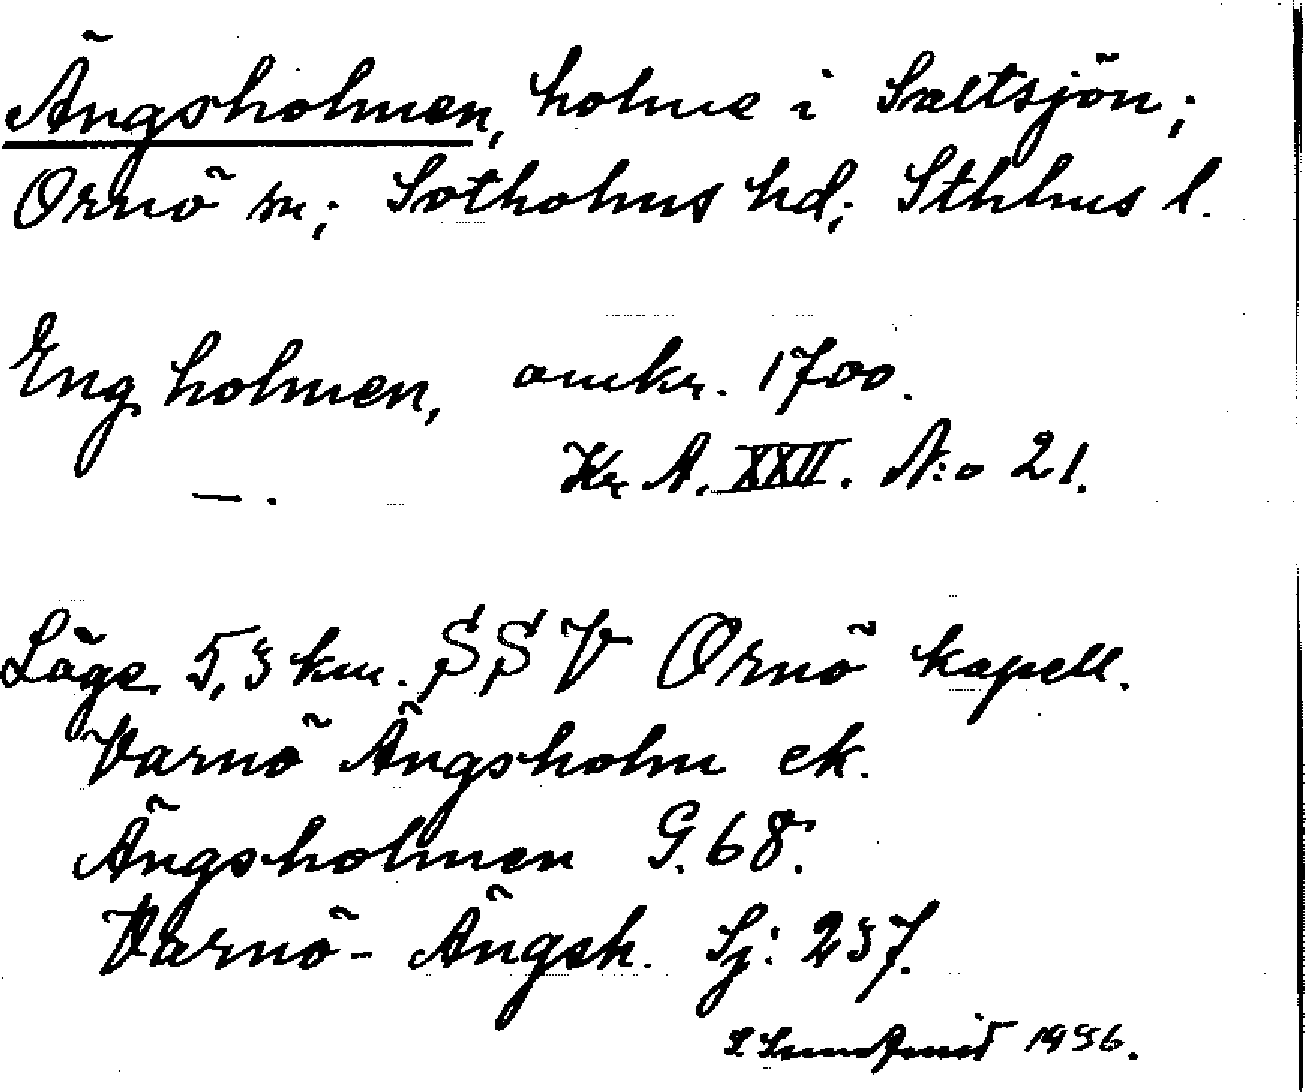 Ängsholmen, holme i Saltsjön;
Ornö sn; Sotholms hd; Sthlms l.
Engholmen, omkr. 1700.
— . Kr A. XXII. N:o 21.
Läge 5,3 km. SSV Ornö kapell.
Varnö Ängsholm ek.
Ängsholmen G. 68.
Varnö- Ängsh. Sj: 237.
1936.